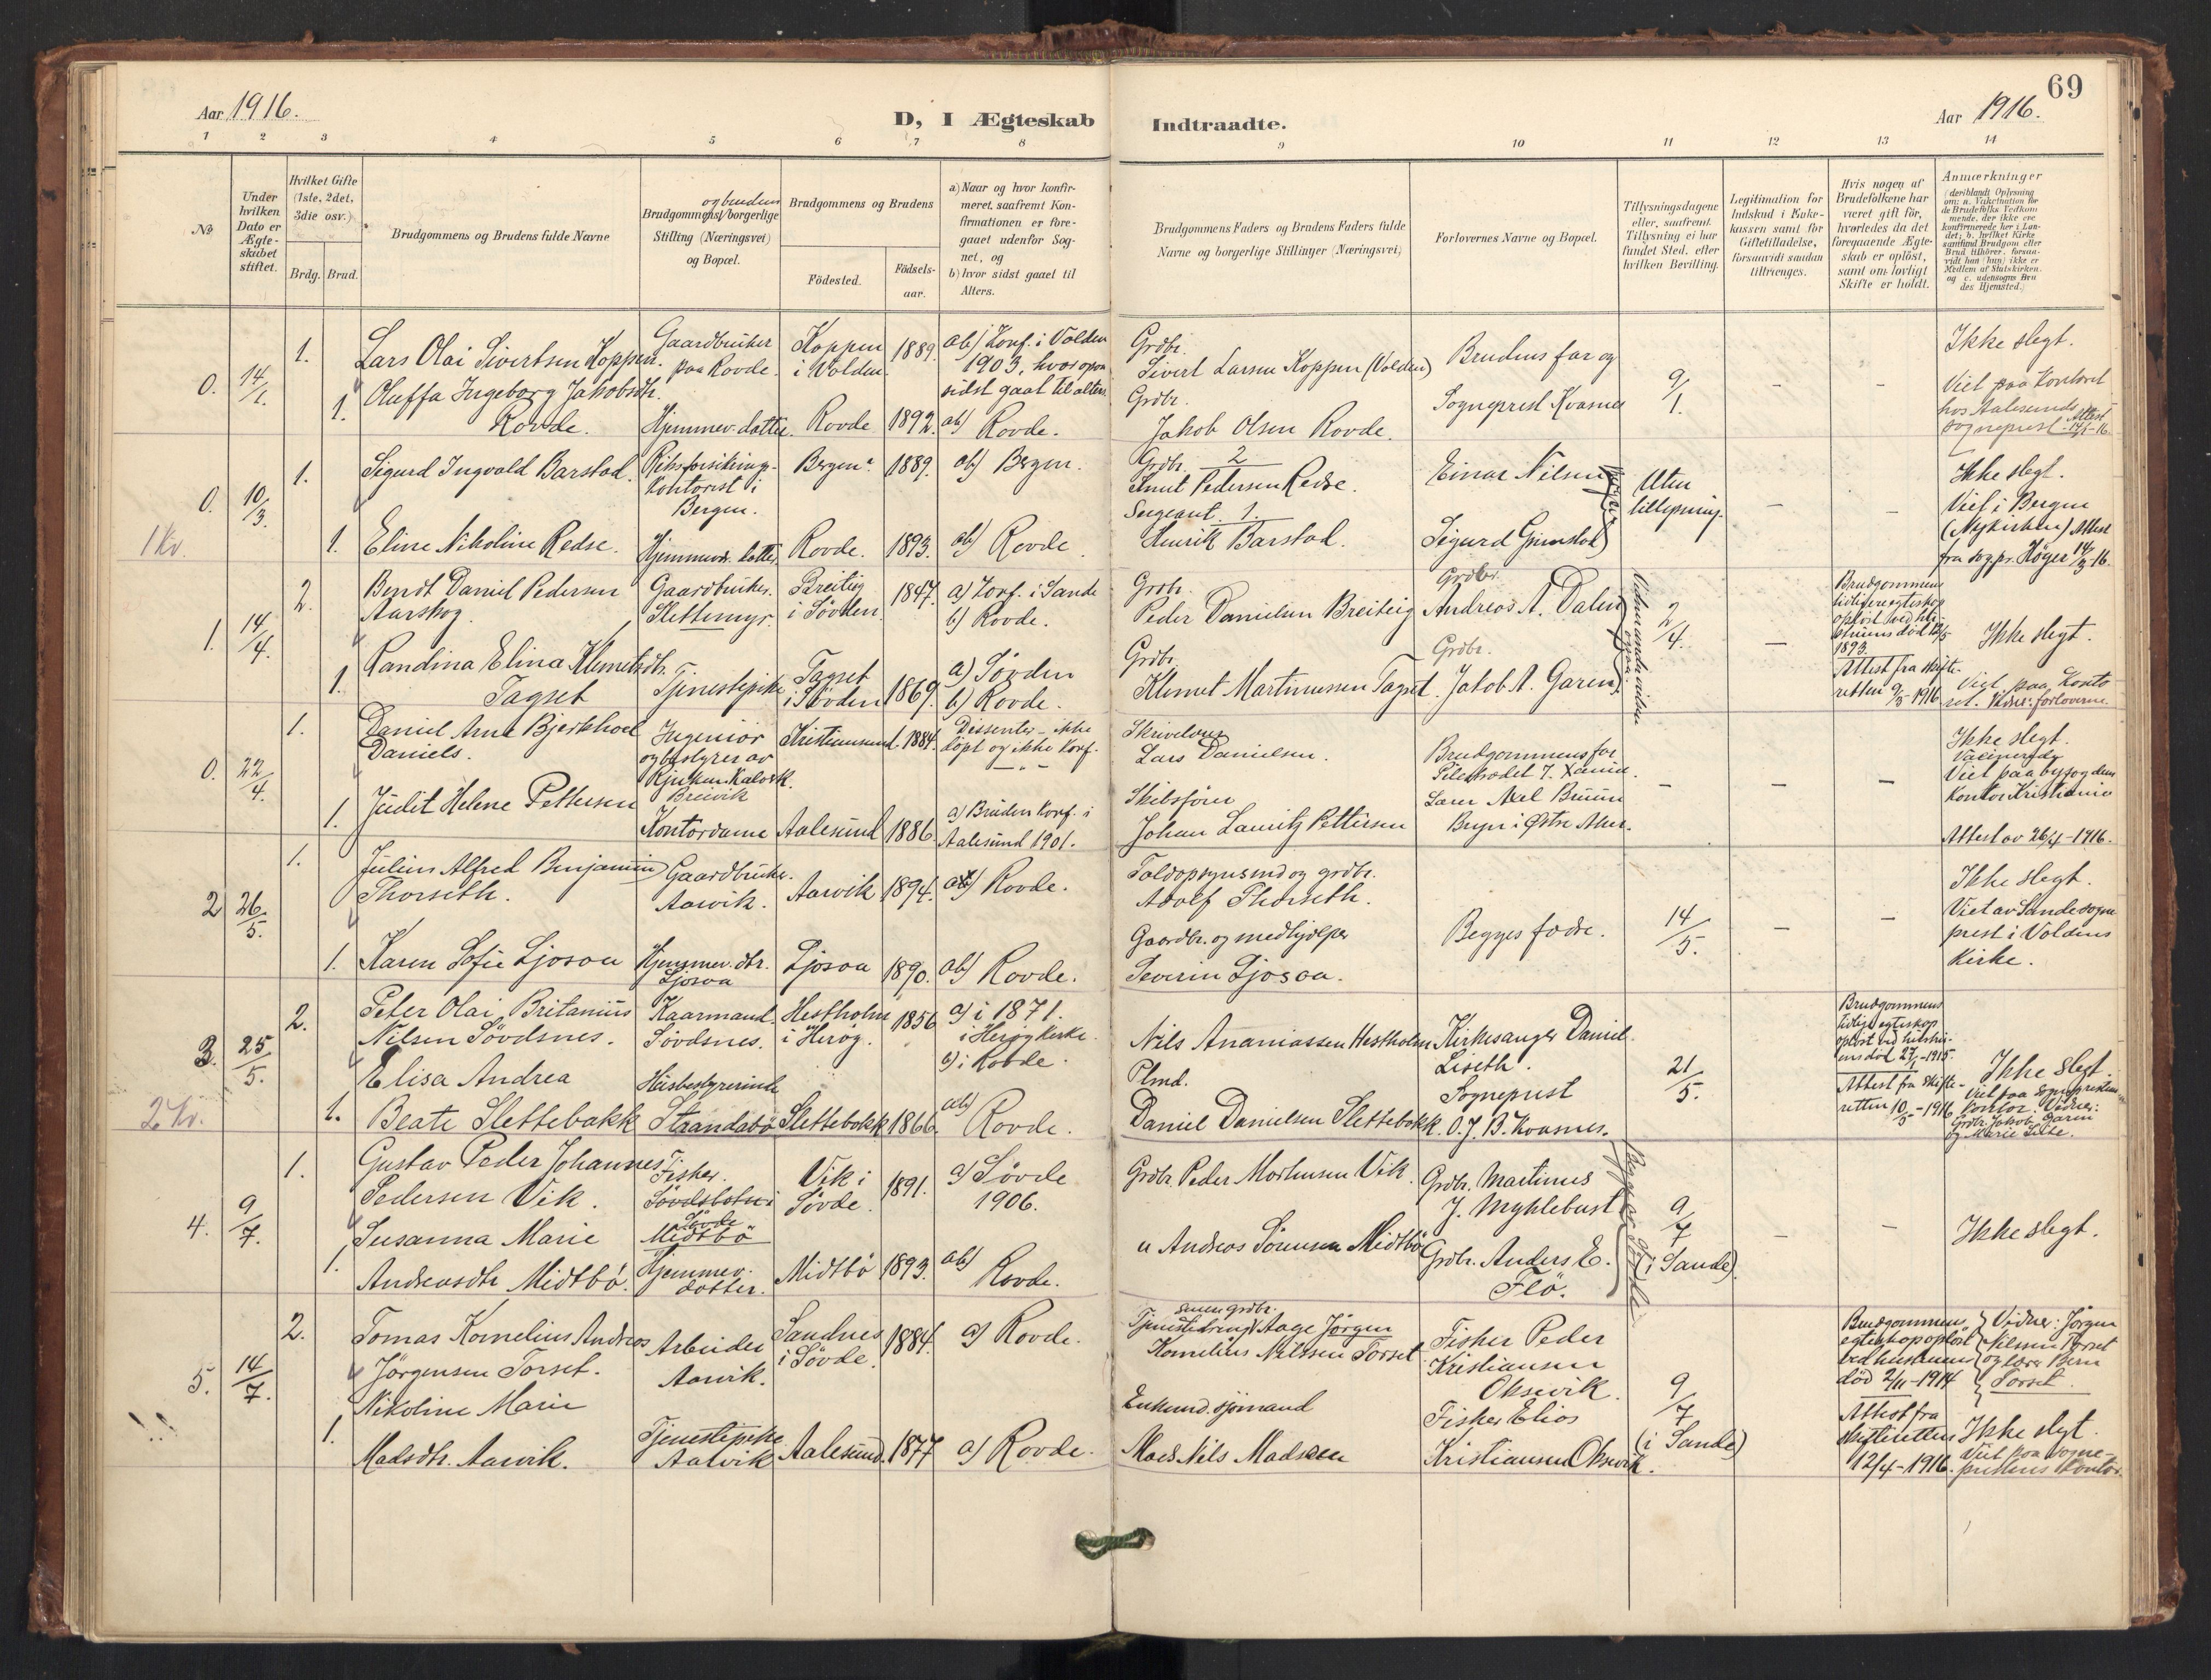 69
Aar 1916.
D, I Ægteskab Indtraadte.
Aar 1916.
1 2 3 4 5 6 7 8 9 10 11 12 13 14
No
Under hvilken Dato er Ægteskabet stiftet.
Hvilket Gifte (1ste, 2det, 3die osv.)
Brdg. Brud.
Brudgommens og Brudens fulde Navne
og brudens
Brudgommens borgerlige Stilling (Næringsvei) og Bopæl.
Brudgommens og Brudens
Födested.
Födselsaar.
a) Naar og hvor konfirmeret, saafremt Konfirmationen er foregaaet udenfor Sognet, og
b) hvor sidst gaaet til Alters.
Brudgommens Faders og Brudens Faders fulde Navne og borgerlige Stillinger (Næringsvei)
Forlovernes Navne og Bopæl.
Tillysningsdagene eller, saafremt Tillysning ei har fundet Sted, efter hvilken Bevilling.
Legitimation for Indskud i Enkekassen samt for Giftetilladelse, forsaavidt saadan tiltrænges.
Hvis nogen af Brudefolkene har været gift för, hvorledes da det foregaaende Ægteskab er oplöst, samt om lovligt Skifte er holdt.
Anmærkninger (deriblandt Oplysning om: a. Vaksination for de Brudefolks Vedkommende, der ikke ere konfirmerede her i Landet; b. hvilket Kirkesamfund Brudgom eller Brud tilhörer, forsaavidt han (hun) ikke er Medlem af Statskirken, og c. udensogns Brudes Hjemsted.)
0. 14/1. 1. Lars Olai Sivertsen Koppen. Gaardbruker paa Rovde. Koppen i Volden. 1889. ab) Konf. i Volden 1903, hvor ogsaa sidst gaat til alters
Grdbr. Sivert Larsen Koppen (Volden) Brudens far og Sogneprest Kvasnes 9/1. - - Ikke slegt.
Viet paa kontoret hos Aalesunds sogneprest. Attest 14/1-16.
1. Olaffa Ingeborg Jakobsdtr. Rovde. Hjemmev. datter. Rovde 1892. ab) Rovde.
Grdbr. Jakob Olsen Rovde.
0. 10/3. 1. Sigurd Ingvald Barstad. Riksforsikrings-kontorist i Bergen. Bergen. 1889. ab) Bergen.
Grdbr. 2 Knut Pedersen Redse. Einar Nilsen Uten tillysning. - - Ikke slegt.
Viet i Bergen (Nykirken) Attest fra sogpr. Köger 14/3-16.
1 Kv.
1. Eline Nikoline Redse. Hjemmev. datter Rovde. 1893. ab) Rovde.
Sergeant. 1. Henrik Barstad. Sigurd Grimstad
1. 14/4. 2. Bendt Daniel Pedersen Aarskog Gaardbruker. Slettemyr. Breiteig i Sövden 1847. a) Konf. i Sande b) Rovde.
Grdbr. Peder Danielsen Breiteig Grdbr. Andreas A. Dalen 2/4. - Brudgommens tidligere egteskap oplöst ved hustruens död 1893. Attest fra skifteretten 9/3-1916 Ikke slegt.
Viet paa kontoret. Vidner: forloverne
1. Randina Elina Klemetsdtr. Tagset Tjenestepike Tagset i Sövden 1869. a) Sövden b) Rovde.
Grdbr. Klemet Martinussen Tagset. Grdbr. Jakob A. Garen
0. 22/4. 1. Daniel Arne Bjerkhoel Daniels. Ingeniör og bestyrer av Rjukan Kalverk. Breivik Kristiansund. 1884. Dissenter - ikke döpt og ikke konf.
Lars Danielsen. Brudgommens far - - - Ikke slegt.
Viet paa byfogdens kontor Kristiania
Attest av 26/4-1916.
1. Judit Helene Pettersen Kontordame Aalesund 1886. a) Bruden konf. i Aalesund 1901.
Skibsförer Johan Lauritz Pettersen Axel Bruun Bryn i Östre Aker.
2 26/5. 1. Julius Alfred Benjamin Thorseth. Gaardbruker. Aarvik. Aarvik 1894. ab) Rovde.
Toldopsynsmd og grdbr. Adolf Thorseth. Begges fædre. 14/5. - - Ikke slegt.
Viet av Sande sogneprest i Voldens Kirke.
1. Karen Sofie Ljosaa Hjemmev. dtr. Ljosaa Ljosaa 1890. ab) Rovde.
Gaardbr. og medhjelper Severin Ljosaa.
3. 25/5. 2. Peter Olai Britanius Nilsen Sövdsnes. Kaarmand. Sövdsnes. Hestholm i Heröy. 1856 a) i 1871. i Heröy kirke. b) i Rovde.
Nils Ananiassen Hestholm Kirkesanger Daniel Liseth. Sogneprest O. J. B. Kvasnes. 21/5. Brudgommens tidligere egteskap oplöst ved hustruens död 27/1-1915. Attest fra skifteretten 10/5-1916 Ikke slegt.
Viet paa sogneprestens kontor. Vidner: Grdbr. Jakob Garen og Marie Sæte.
2 Kv.
1. Elisa Andrea Beate Slettebakk Husbestyrerinde Strandabö Slettebakk 1866. ab) Rovde.
Plmd. Daniel Danielsen Slettebakk.
4. 9/7. 1. Gustav Peder Johannes Pedersen Vik. Fisker. Sövdsbotn i Sövde Vik i Sövde. 1891. a) Sövde 1906.
Grdbr. Peder Mortensen Vik. Grdbr. Martinus J. Myklebust 9/7 (i Sande). - - Ikke slegt.
1. Susanna Marie Andreasdtr. Midtbö. Midtbö Hjemmev. datter. Midtbö 1893. ab) Rovde.
" Andreas Sörensen Midtbö Grdbr. Anders E. Flö.
5. 14/7. 2. Tomas Kornelius Andreas Jörgensen Torset. Arbeider Aarvik. Sandnes i Sövde. 1884. a) Rovde.
senere grdbr. Tjenestedreng Aage Jörgen Kornelius Nilssen Torset Fisker Peder Kristiansen Oksvik. 9/7 (i Sande) Brudgommens egteskap oplöst ved hustruens död 2/11-1914 Attest fra skifteretten 12/4-1916. Vidner: Jörgen Nilssen Torset og lærer Bern Torset.
Ikke slegt.
Viet paa sogneprestens kontor.
1. Nikoline Marie Madsdtr. Aarvik. Tjenestepike Aarvik Aalesund. 1877 a) Rovde.
Enkemd. sjömand Mads Nils Madsen Fisker Elias Kristiansen Oksvik.